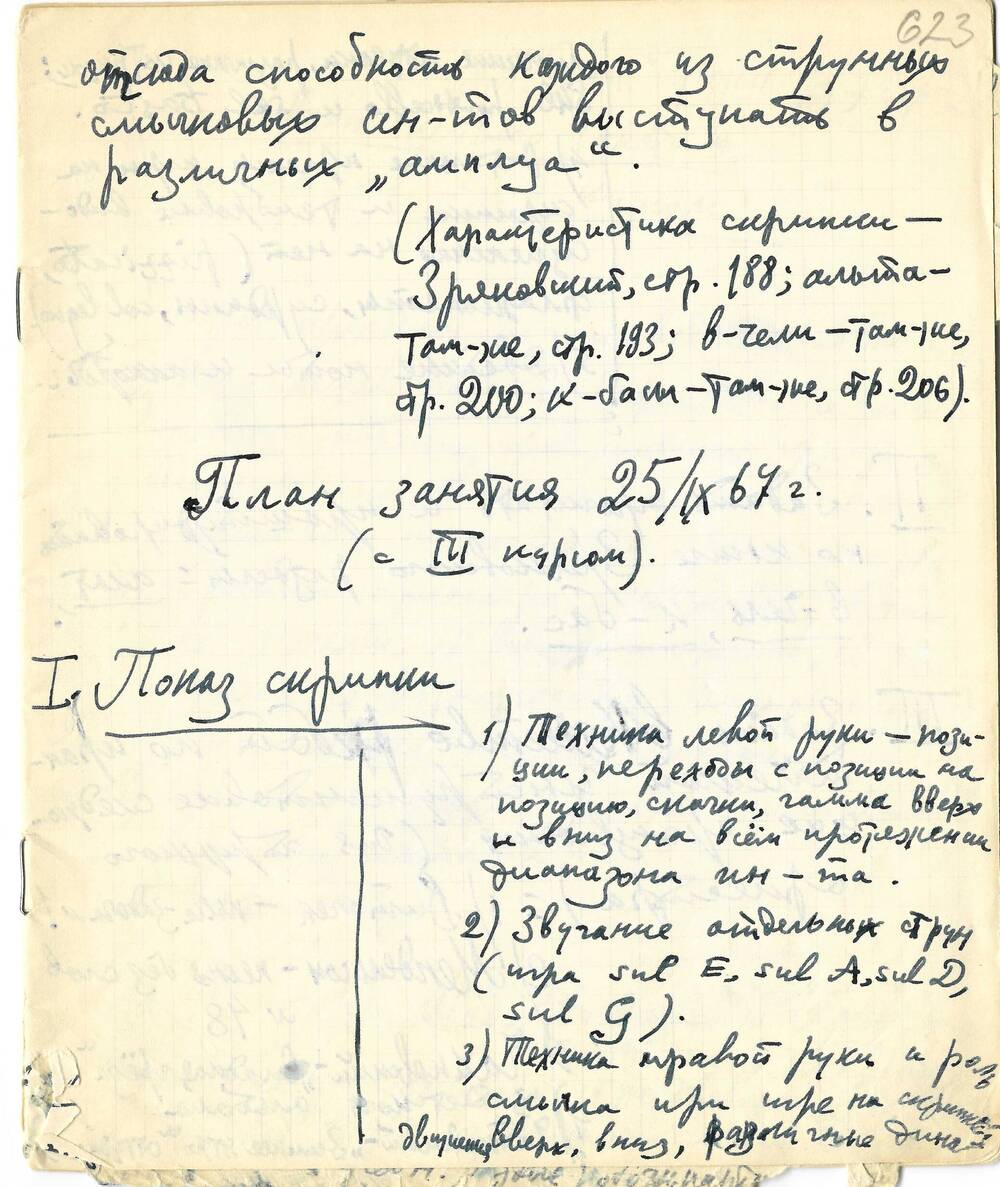 623
отсюда способность каждого из струнных
смычковых ин-тов выступать в
различных „амплуа“.
(Характеристика скрипки —
Зряковский, стр. 188; альта —
там-же, стр. 193; в-чели — там-же,
стр. 200; к-басы — там-же, стр. 206).
План занятия 25/IX 67 г.
(с III курсом).
I. Показ скрипки
1) Техника левой руки — пози-
ции, переходы с позиции на
позицию, скачки, гамма вверх
и вниз на всём протяжении
диапазона ин-та.
2) Звучание отдельных струн
(игра sul E, sul A, sul D,
sul G).
3) Техника правой руки и роль
смычка при игре на скрипке
движение вверх, вниз, различные дина-